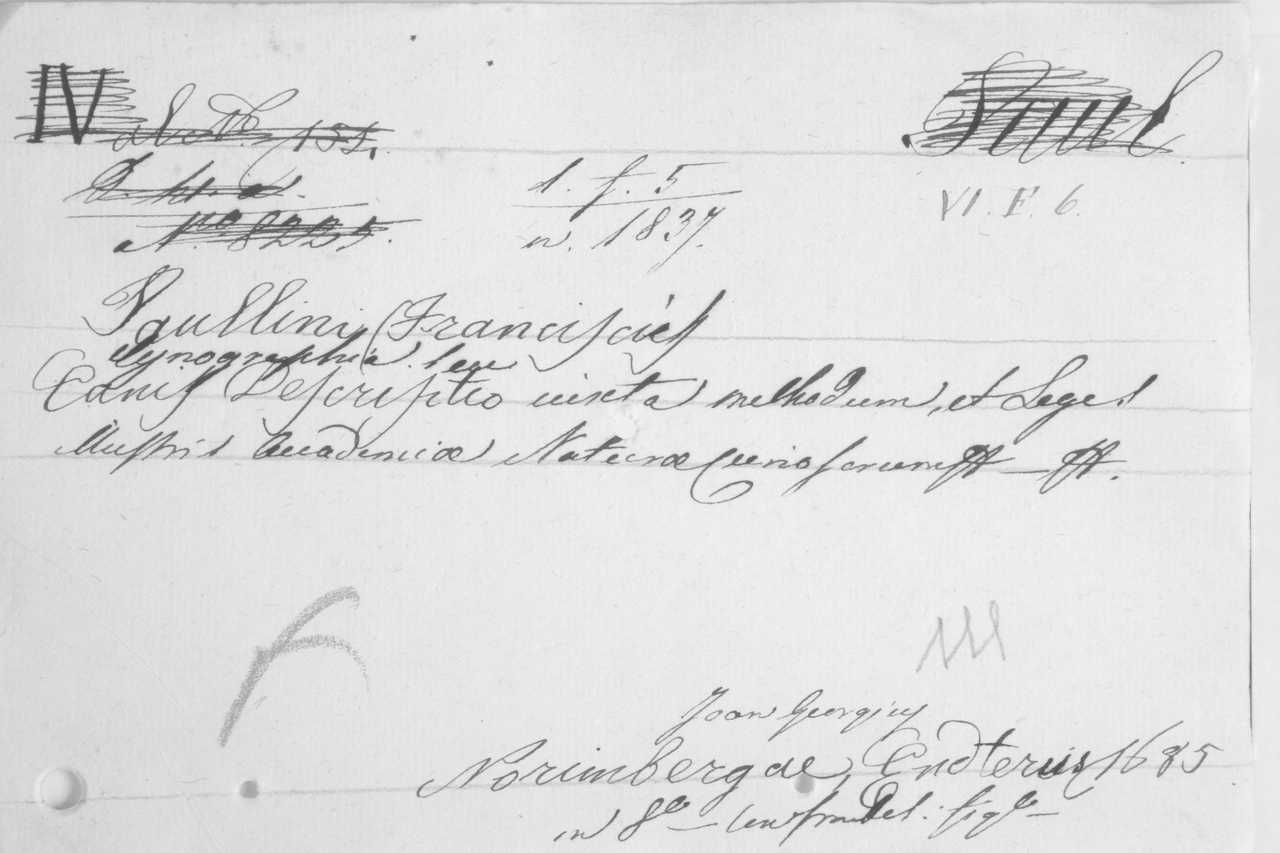 IV
155.
N.º 8225.
1. f. 5
n. 1837.
VI. F. 6.
Paullini (Francisci)
Cynographia seu
Canis Descriptio iuxta methodum, et Leges
Illustris Academiæ Naturæ Curiosorum
Joan Georgius
Norimbergae, Endterus, 1685
in 8º